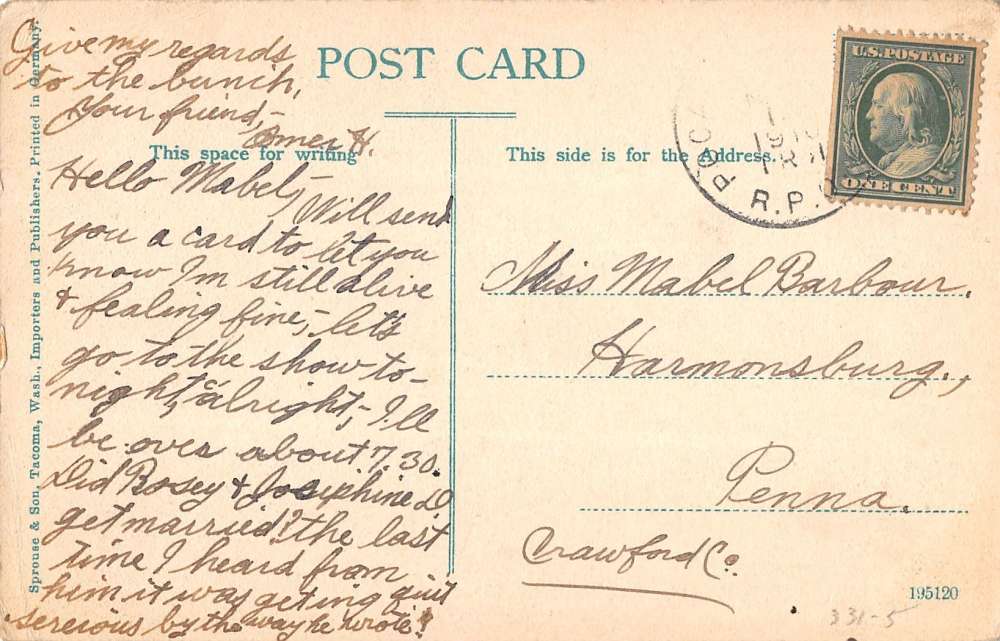 Give my regards
to the bunch,
Your friend,-
Omer H.
POST CARD
This space for writing
This side is for the Address.
U.S. POSTAGE
ONE CENT
POCA
1910
R.P.O
Hello Mabel,-
Will send
you a card to let you
know I'm still alive
& fealing fine,- let's
go to the show to-
night, "alright,- I'll
be over about 7,30.
Did Rosey & Josiphine D.
get married? the last
time I heard from
him it was geting quit
sereious by the way he wrote"
Miss Mabel Barbour,
Harmonsburg.,
Penna.
Crawford Co.
195120
331-5
Sprouse & Son, Tacoma, Wash., Importers and Publishers. Printed in Germany.